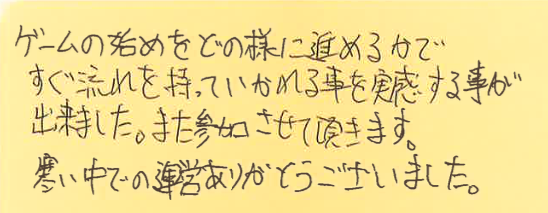 ゲームの始めをどの様に進めるかで
すぐ流れを持っていかれる事を実感する事が
出来ました。また参加させて頂きます。
寒い中での運営ありがとうございました。